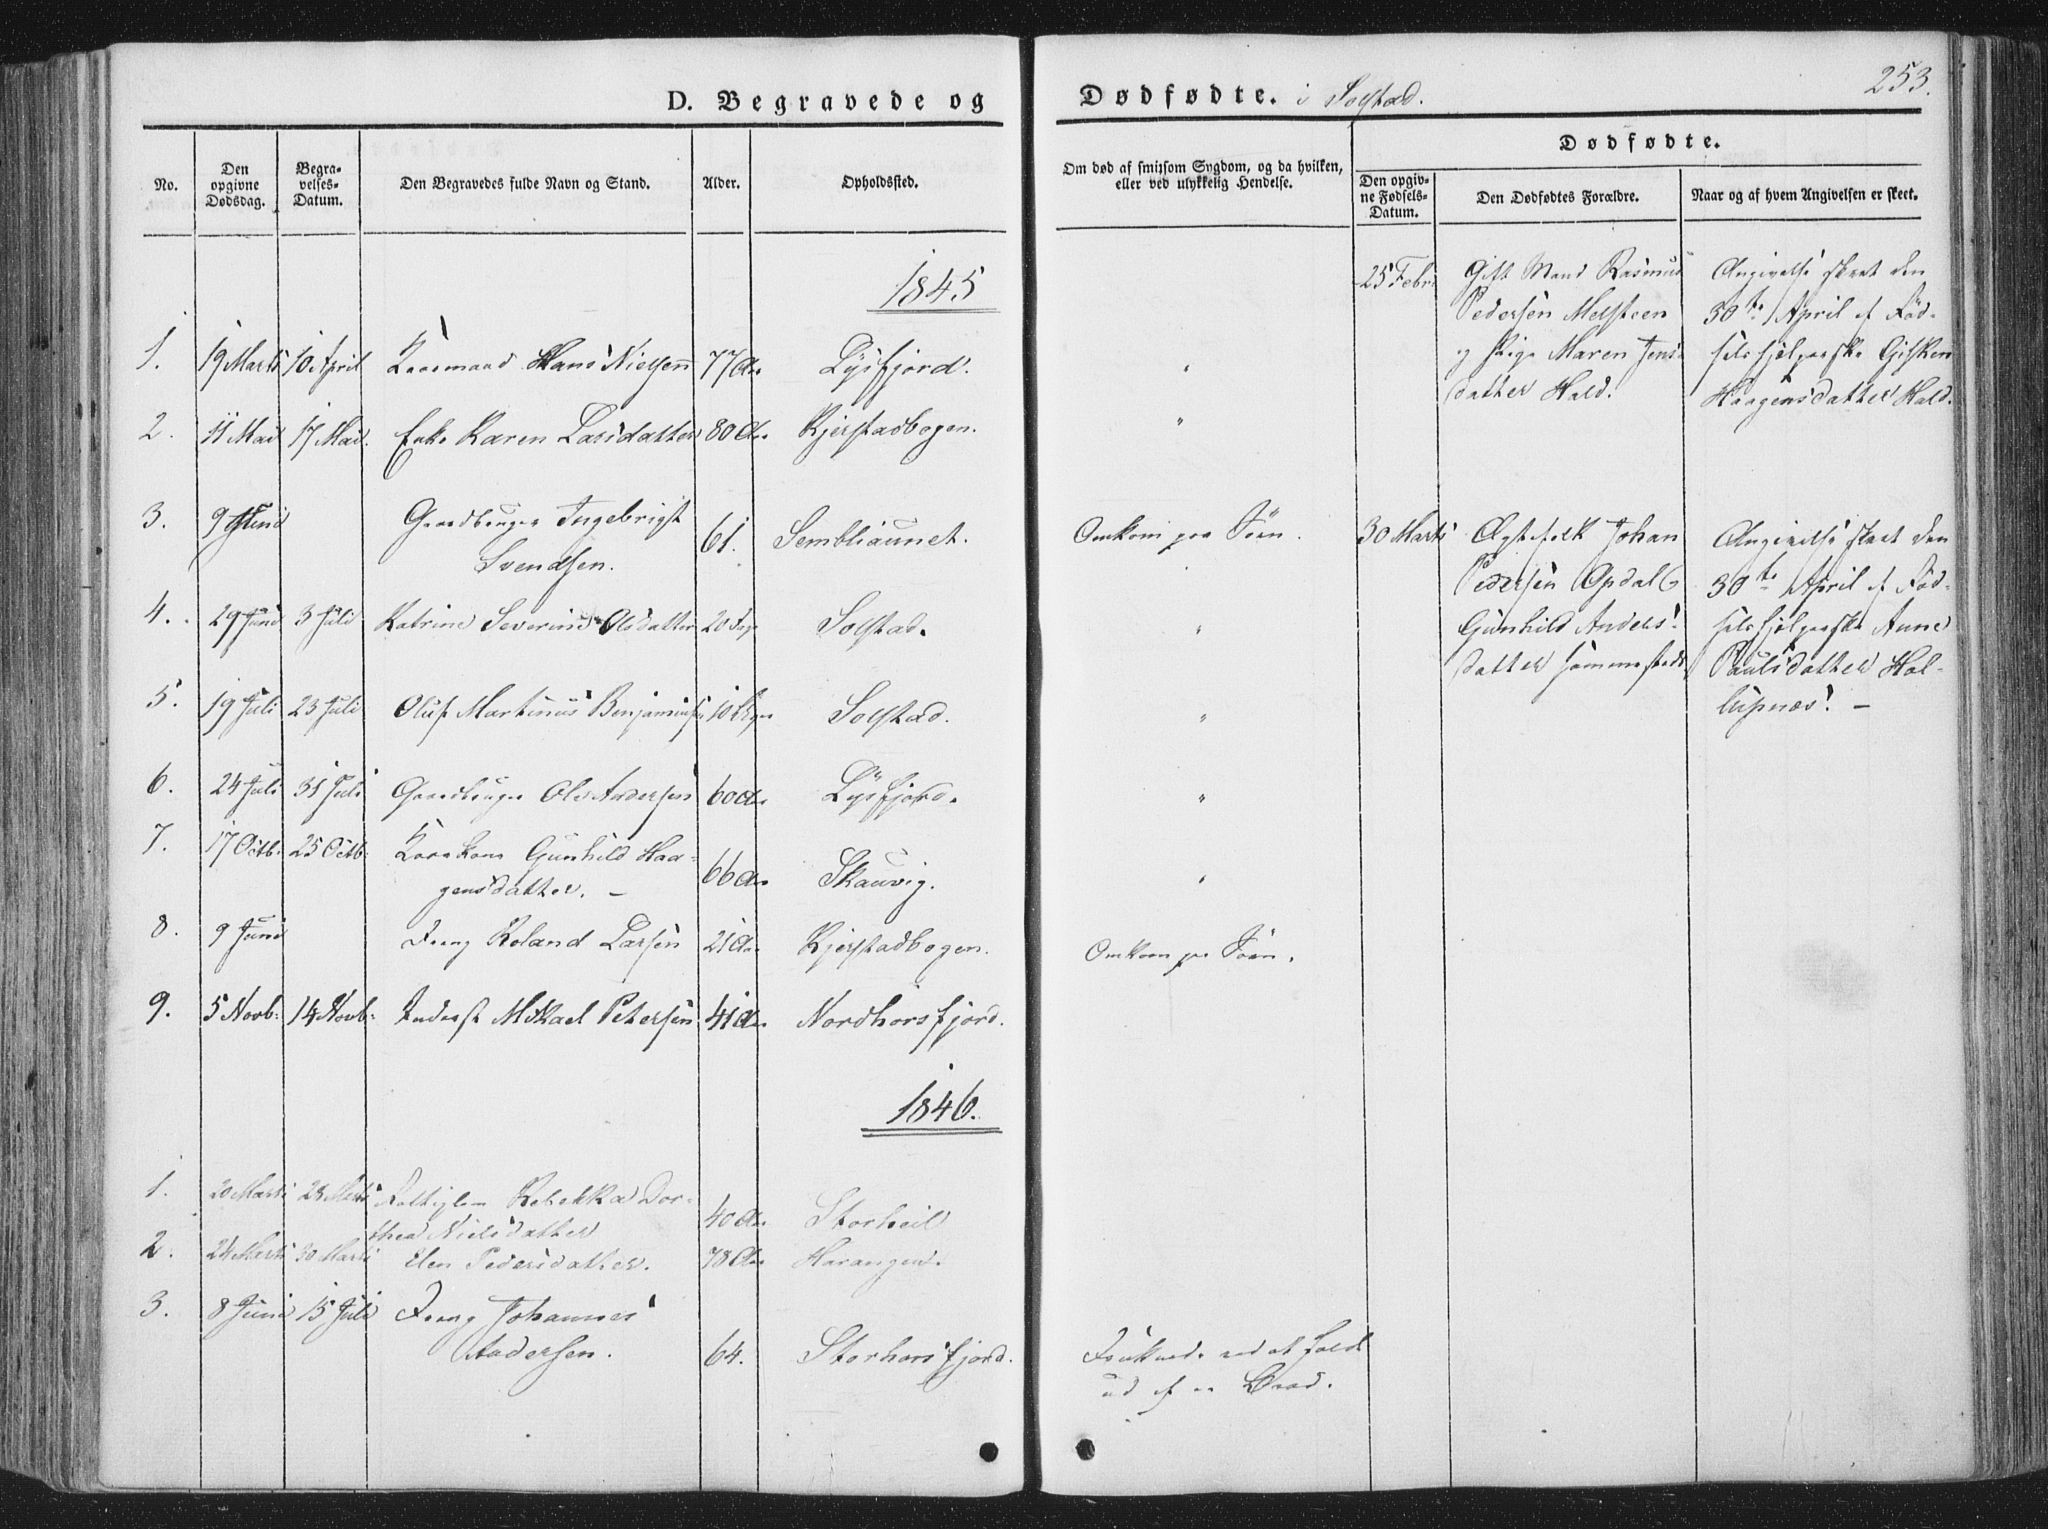 D. Begravede og
No. Den opgivne Dødsdag. Begravelses-Datum. Den Begravedes fulde Navn og Stand. Alder. Opholdssted.
1845
1. 19 Marti 10 April Kaarmand Hans Nielsen 77 Aar Lysfjord.
2. 11 Mai 17 Mai. Enke Karen Larsdatter 80 Aar Kjerstadbogen.
3. 9 Juni Gaardbruger Ingebrigt
Svendsen. 61. Sembliaunet.
4. 29 Juni 3 Juli Katrine Severine Olsdatter 20 Dage Solstad.
5. 19 Juli 23 Juli Oluf Martinus Benjaminsen 10 Solstad.
6. 24 Juli 31 Juli Gaardbruger Ole Andersen 60 Aar Lysfjord.
7. 17 Octb. 25 Octb. Gunhild Haa-
gensdatter. – 66 Aar Skauvig.
8. 9 Juni Dreng Roland Larsen 21 Aar Kjerstadbogen.
9. 5 Novb: 14 Novb: Inderst Mikael Petersen 41 Aar Nordhorsfjord.
1846.
1. 20 Marti 28 Marti Rebekka Dor-
thea Nielsdatter 40 Aar Storheil
2. 24 Marti 30 Marti Elen Pedersdatter. 78 Aar Harangen.
3. 8 Juni 15 Juli Dreng Johannes
Andersen. 64. Storhorsfjord.
Dødfødte. i Solstad.
253.
Om død af smitsom Sygdom, og da hvilken, eller ved ulykkelig Hendelse.
Dødfødte.
Den opgivne Fødsels-Datum. Den Dødfødtes Forældre. Naar og af hvem Angivelsen er skeet.
25 Febr. Gift Mand Rasmus
Pedersen Melsteen
og Pige Maren Jens-
datter Hald.
Angivelse skeet den
30te April af Fød-
selshjelperske Gisken
Haagensdatter Hald.
"
"
Omkom paa Søen.
30 Marti Ægtefolk Johan
Pedersen Opdal &
Gunhild Anders-
datter
Angivelse skeet den
30te April af Fød-
selshjelperske Anne
Paulsdatter Hal-
–
"
"
"
"
Omkom paa Søen.
Druknede ved at falde
ud af en Baad.